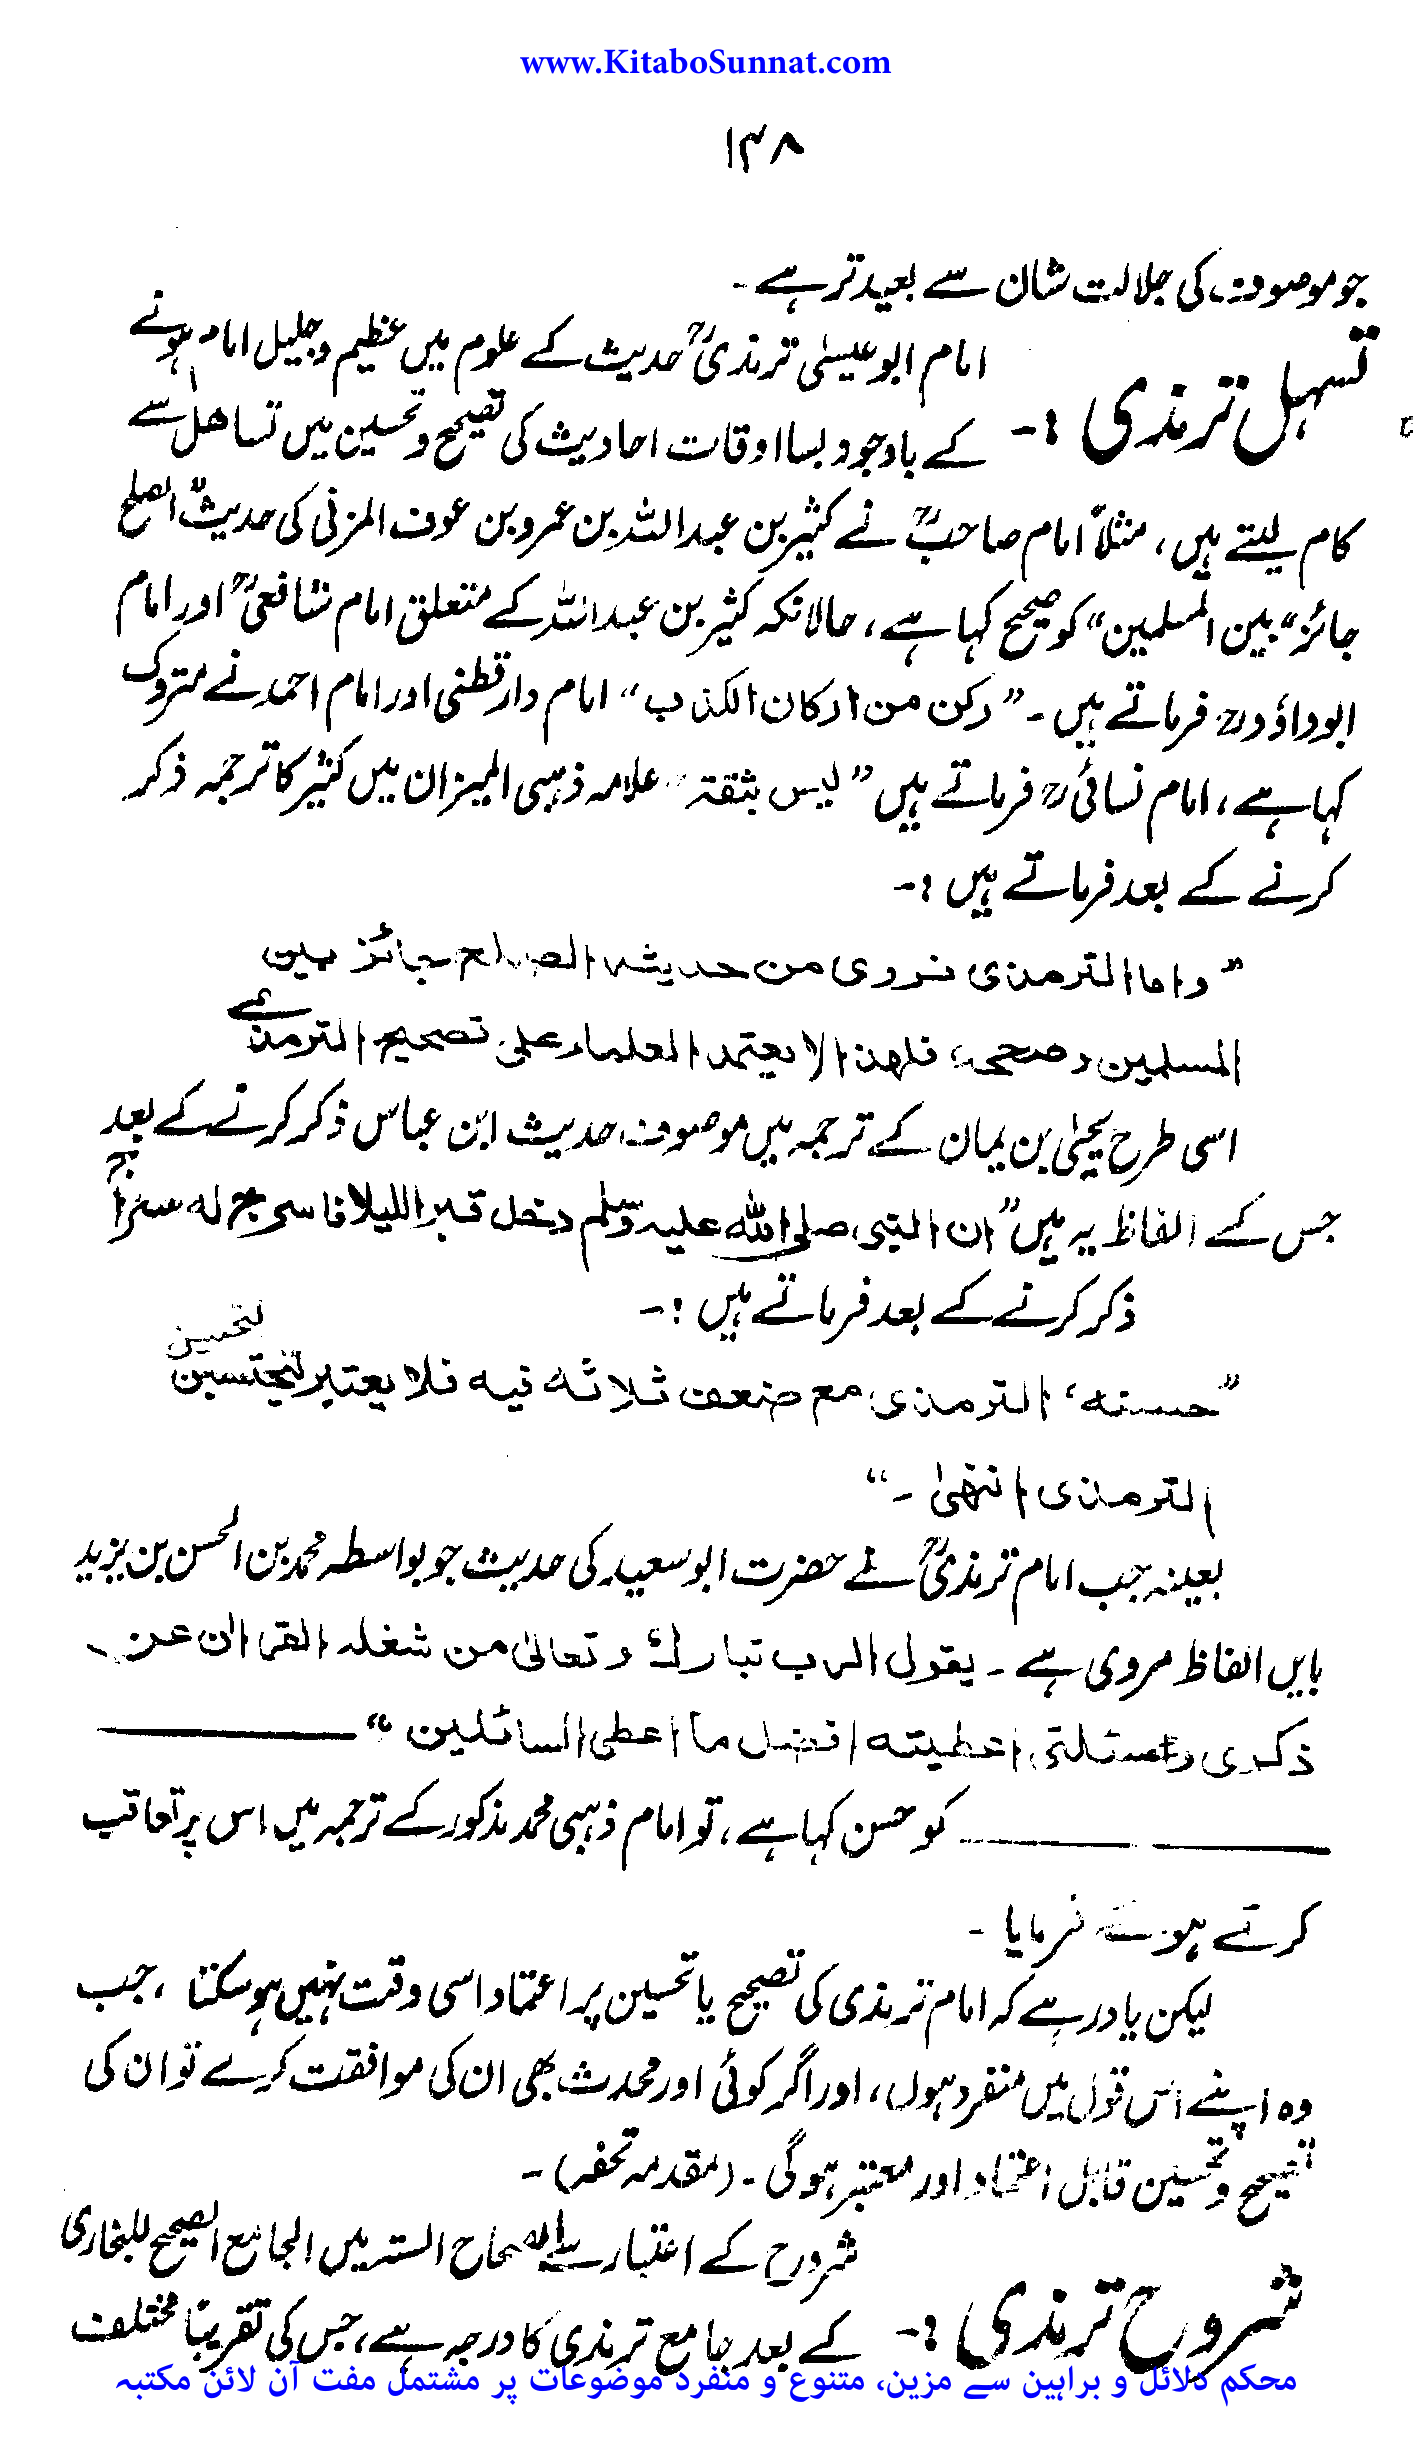 www.KitaboSunnat.com
۱۳۸
جو موصوف کی جلالت شان سے بعید تر ہے ۔
امام ابو عیسیٰ ترمذیؒ حدیث کے علوم میں عظیم و جلیل امام ہونے
تسہل ترمذی :-
کے باوجود بسا اوقات احادیث کی تصحیح و تحسین میں تساھل سے
کام لیتے ہیں، مثلاً امام صاحبؒ نے کثیر بن عبداللہ بن عمرو بن عوف المزنی کی حدیث "الصلح
جائز" بین المسلمین" کو صحیح کہا ہے، حالانکہ کثیر بن عبداللہ کے متعلق امام شافعیؒ اور امام
ابوداؤدؒ فرماتے ہیں ۔ "رکن من ارکان الکذب" امام دارقطنی اور امام احمد نے متروک
کہا ہے، امام نسائیؒ فرماتے ہیں "لیس بثقۃ" علامہ ذہبی المیزان میں کثیر کا ترجمہ ذکر
کرنے کے بعد فرماتے ہیں :-
"واما الترمذی فروی من حدیثہ الصلح جائز بین
المسلمین وصححہ، فلھذا لا یعتمد العلماء علی تصحیح الترمذی
اسی طرح یحییٰ بن یمان کے ترجمہ میں موصوف حدیث ابن عباس ذکر کرنے کے بعد
جس کے الفاظ یہ ہیں "ان النبی صلی اللہ علیہ وسلم دخل قبرا لیلا فاسرج لہ سراج
ذکر کرنے کے بعد فرماتے ہیں :-
لتحسین
"حسنہ، الترمذی مع ضعف ثلاثہ فیہ فلا یعتبر لتحتسین
الترمذی انتھیٰ ۔"
بعینہ جب امام ترمذیؒ نے حضرت ابوسعید کی حدیث جو بواسطہ محمد بن الحسن بن یزید
بایں الفاظ مروی ہے ۔ یقول الرب تبارک وتعالیٰ من شغلہ القران عن
ذکری ومسئلتی اعطیتہ افضل ما اعطی السائلین"
کو حسن کہا ہے، تو امام ذہبی محمد مذکور کے ترجمہ میں اس پر تعاقب
کرتے ہوئے فرمایا ۔
لیکن یاد رہے کہ امام ترمذی کی تصحیح یا تحسین پر اعتماد اسی وقت نہیں ہو سکتا، جب
وہ اپنے اس قول میں منفرد ہوں، اور اگر کوئی اور محدث بھی ان کی موافقت کرے تو ان کی
تصحیح و تحسین قابل اعتماد اور معتبر ہو گی ۔ (مقدمہ تحفہ) ۔
شروح کے اعتبار سے الصحاح الستہ میں الجامع الصحیح للبخاری
شروح ترمذی :-
کے بعد جامع ترمذی کا درجہ ہے، جس کی تقریباً مختلف
محکم دلائل و براہین سے مزین، متنوع و منفرد موضوعات پر مشتمل مفت آن لائن مکتبہ